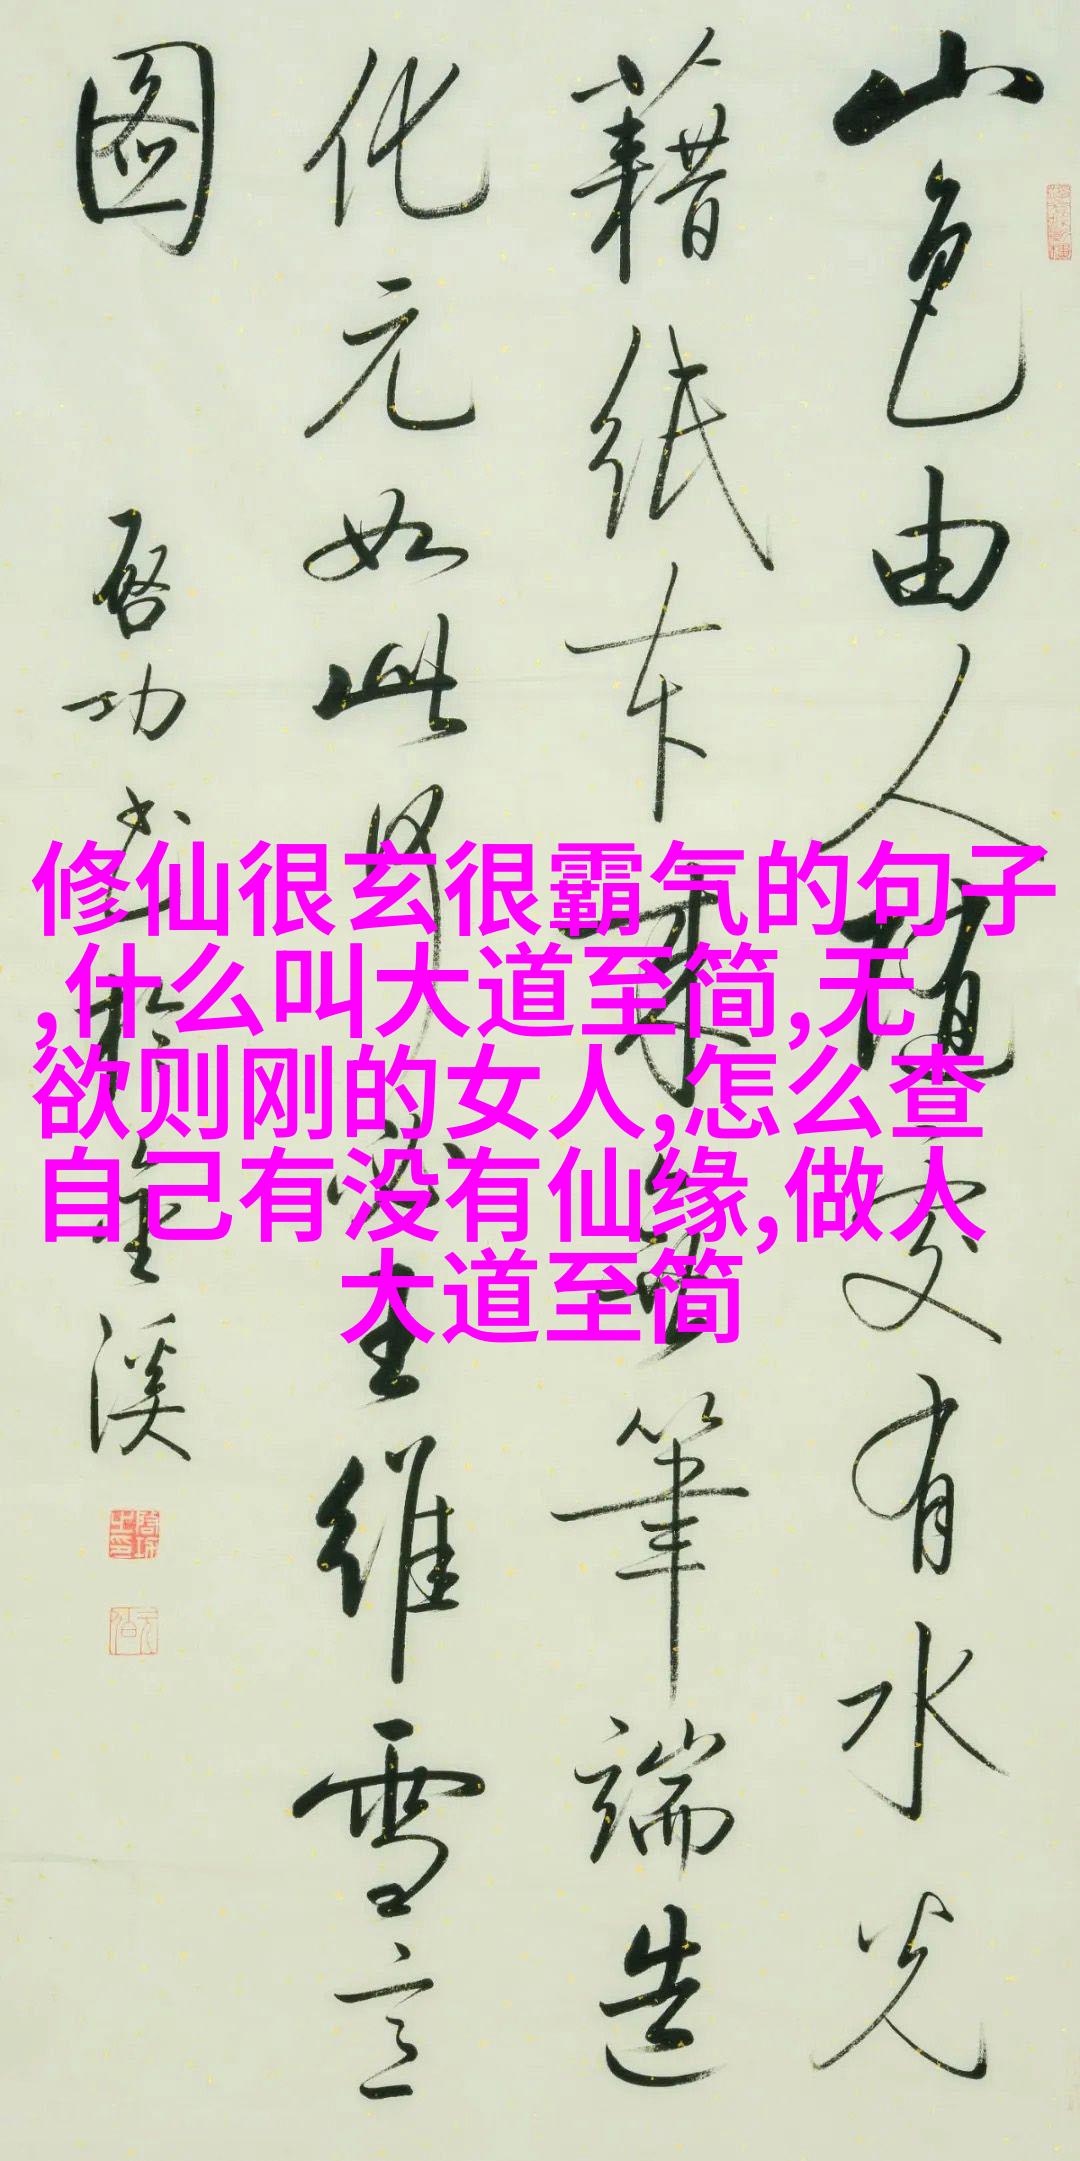 山色由人随處有水光
藉紙本来無筆端造
化元如此王維雪意
圖
启功書於溪
修仙很玄很霸气的句子
,什么叫大道至简,无
欲则刚的女人,怎么查
自己有没有仙缘,做人
大道至简